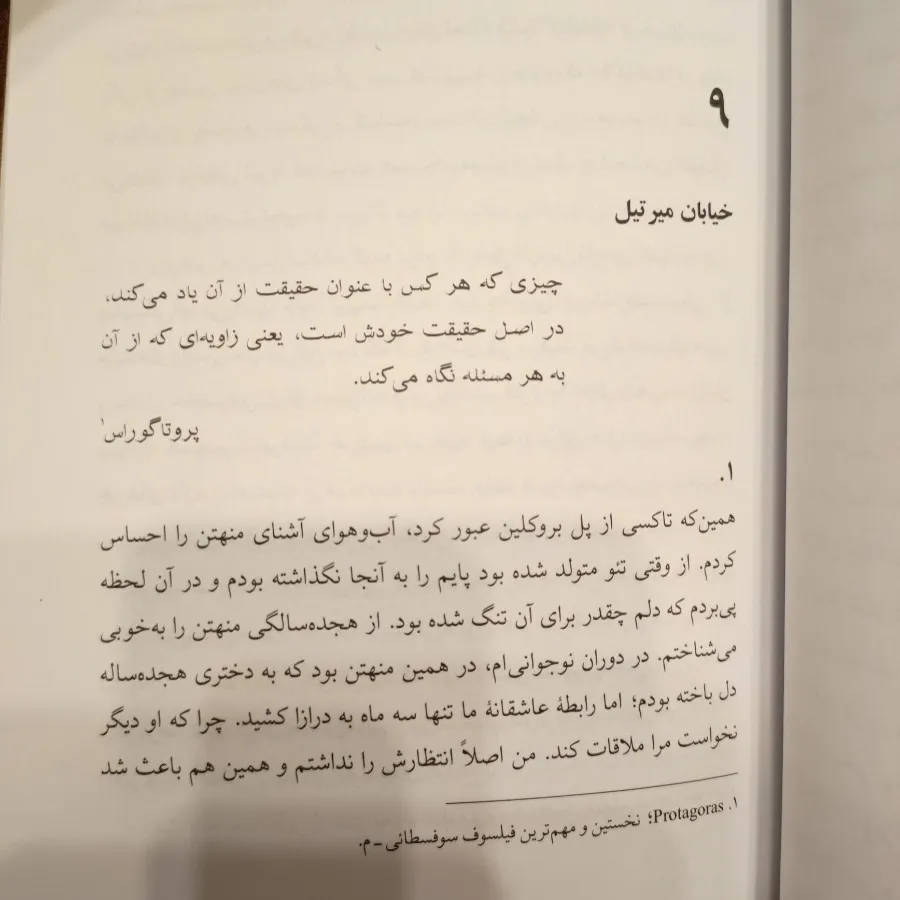 ۹
خیابان میرتیل
چیزی که هر کس با عنوان حقیقت از آن یاد می‌کند،
در اصل حقیقت خودش است، یعنی زاویه‌ای که از آن
به هر مسئله نگاه می‌کند.
پروتاگوراس۱
۱.
همین‌که تاکسی از پل بروکلین عبور کرد، آب‌وهوای آشنای منهتن را احساس
کردم. از وقتی تئو متولد شده بود پایم را به آنجا نگذاشته بودم و در آن لحظه
پی‌بردم که دلم چقدر برای آن تنگ شده بود. از هجده‌سالگی منهتن را به‌خوبی
می‌شناختم. در دوران نوجوانی‌ام، در همین منهتن بود که به دختری هجده‌ساله
دل باخته بودم؛ اما رابطهٔ عاشقانهٔ ما تنها سه ماه به درازا کشید. چرا که او دیگر
نخواست مرا ملاقات کند. من اصلاً انتظارش را نداشتم و همین هم باعث شد
۱. Protagoras؛ نخستین و مهم‌ترین فیلسوف سوفسطائی ـ م.